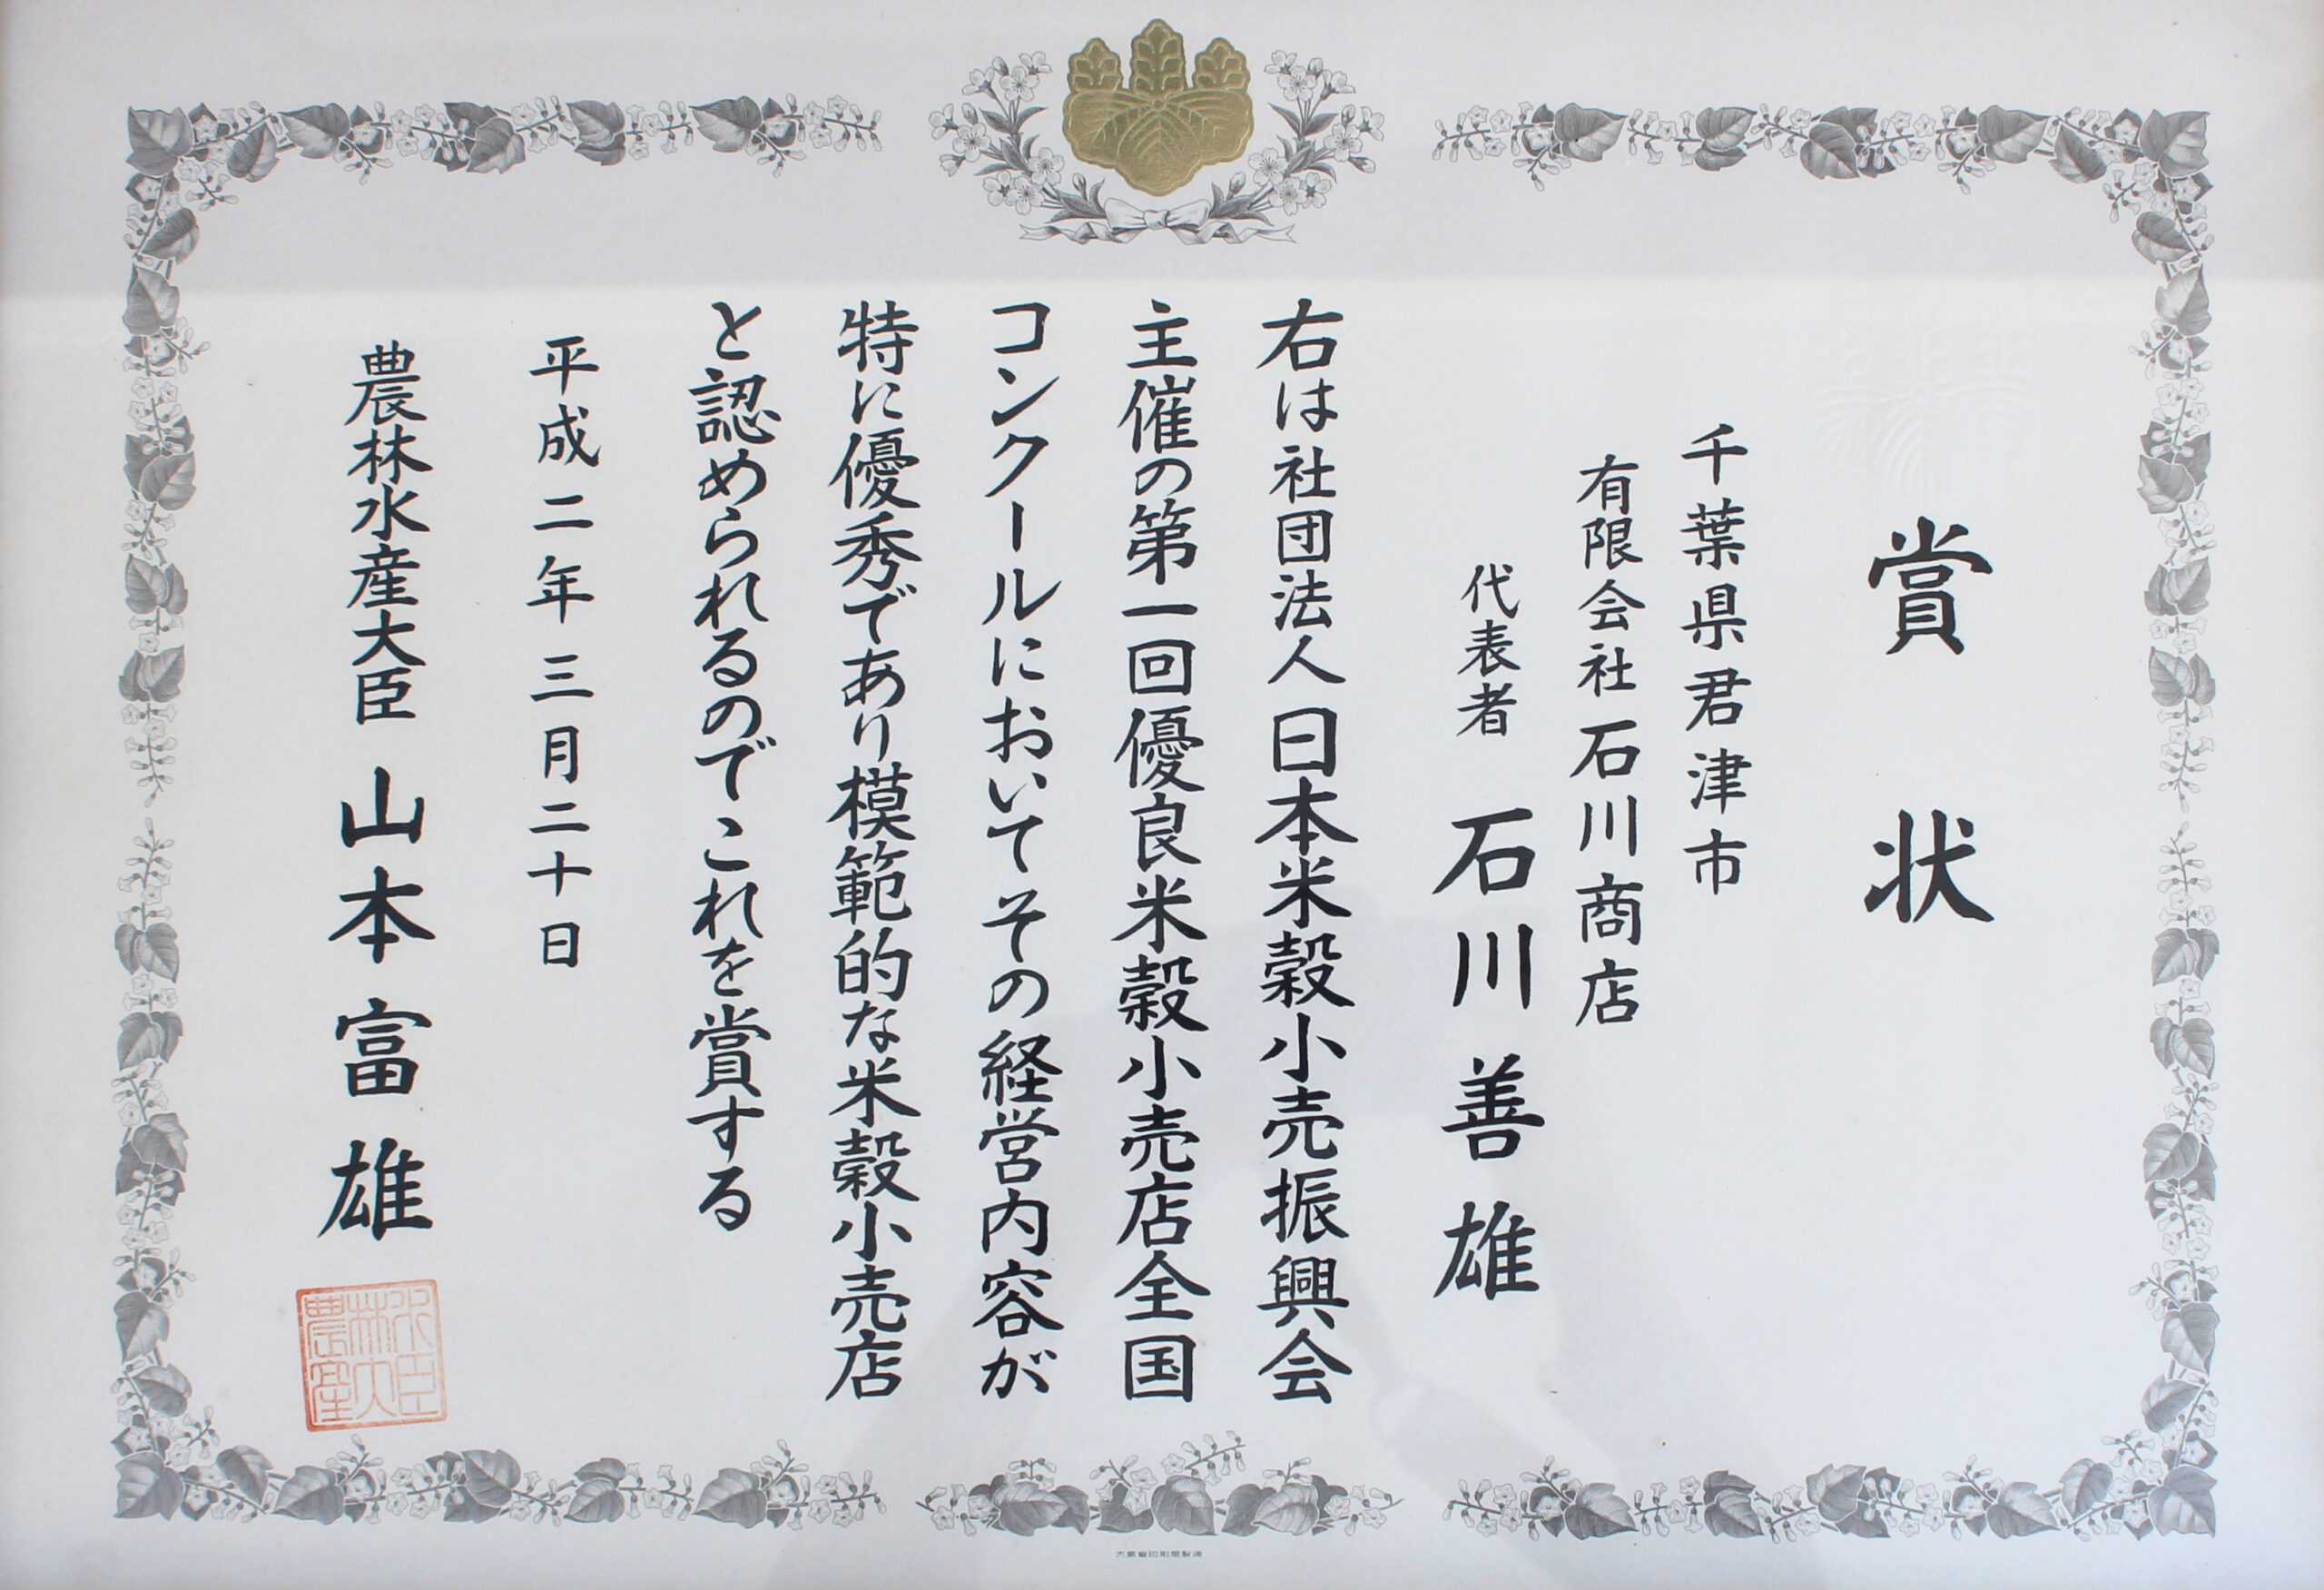 賞状
千葉県君津市
有限会社石川商店
代表者 石川善雄
右は社団法人日本米穀小売振興会
主催の第一回優良米穀小売店全国
コンクールにおいてその経営内容が
特に優秀であり模範的な米穀小売店
と認められるのでこれを賞する
平成二年三月二十日
農林水産大臣 山本富雄
農林水産大臣
大蔵省印刷局製造